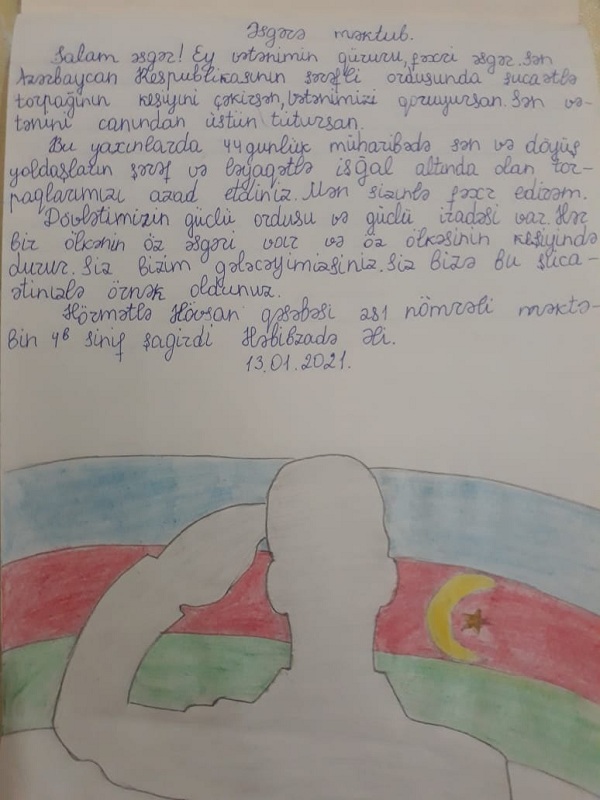 Əsgərə məktub.
Salam əsgər! Ey vətənimin güruru, fəxri əsgər. Sən
Azərbaycan Respublikasının şərəfli ordusunda şucaətlə
torpağının keşiyini çəkirsən, vətənimizi qoruyursan. Sən və-
tənini canından üstün tutursan.
Bu yaxınlarda 44 günlük müharibədə sən və döyüş
yoldaşların şərəf və ləyaqətlə işğal altında olan tor-
paqlarımızı azad etdiniz. Mən sizinlə fəxr edirəm.
Dövlətimizin güclü ordusu və güclü iradəsi var. Hər
bir ölkənin öz əsgəri var və öz ölkəsinin keşiyində
durur. Siz bizim gələcəyimizsiniz. Siz bizə bu şüca-
ətinizlə örnək oldunuz.
Hörmətlə Hövsan qəsəbəsi 281 nömrəli məktə-
bin 4ᴮ sinif şagirdi Həbibzadə Əli.
13.01.2021.